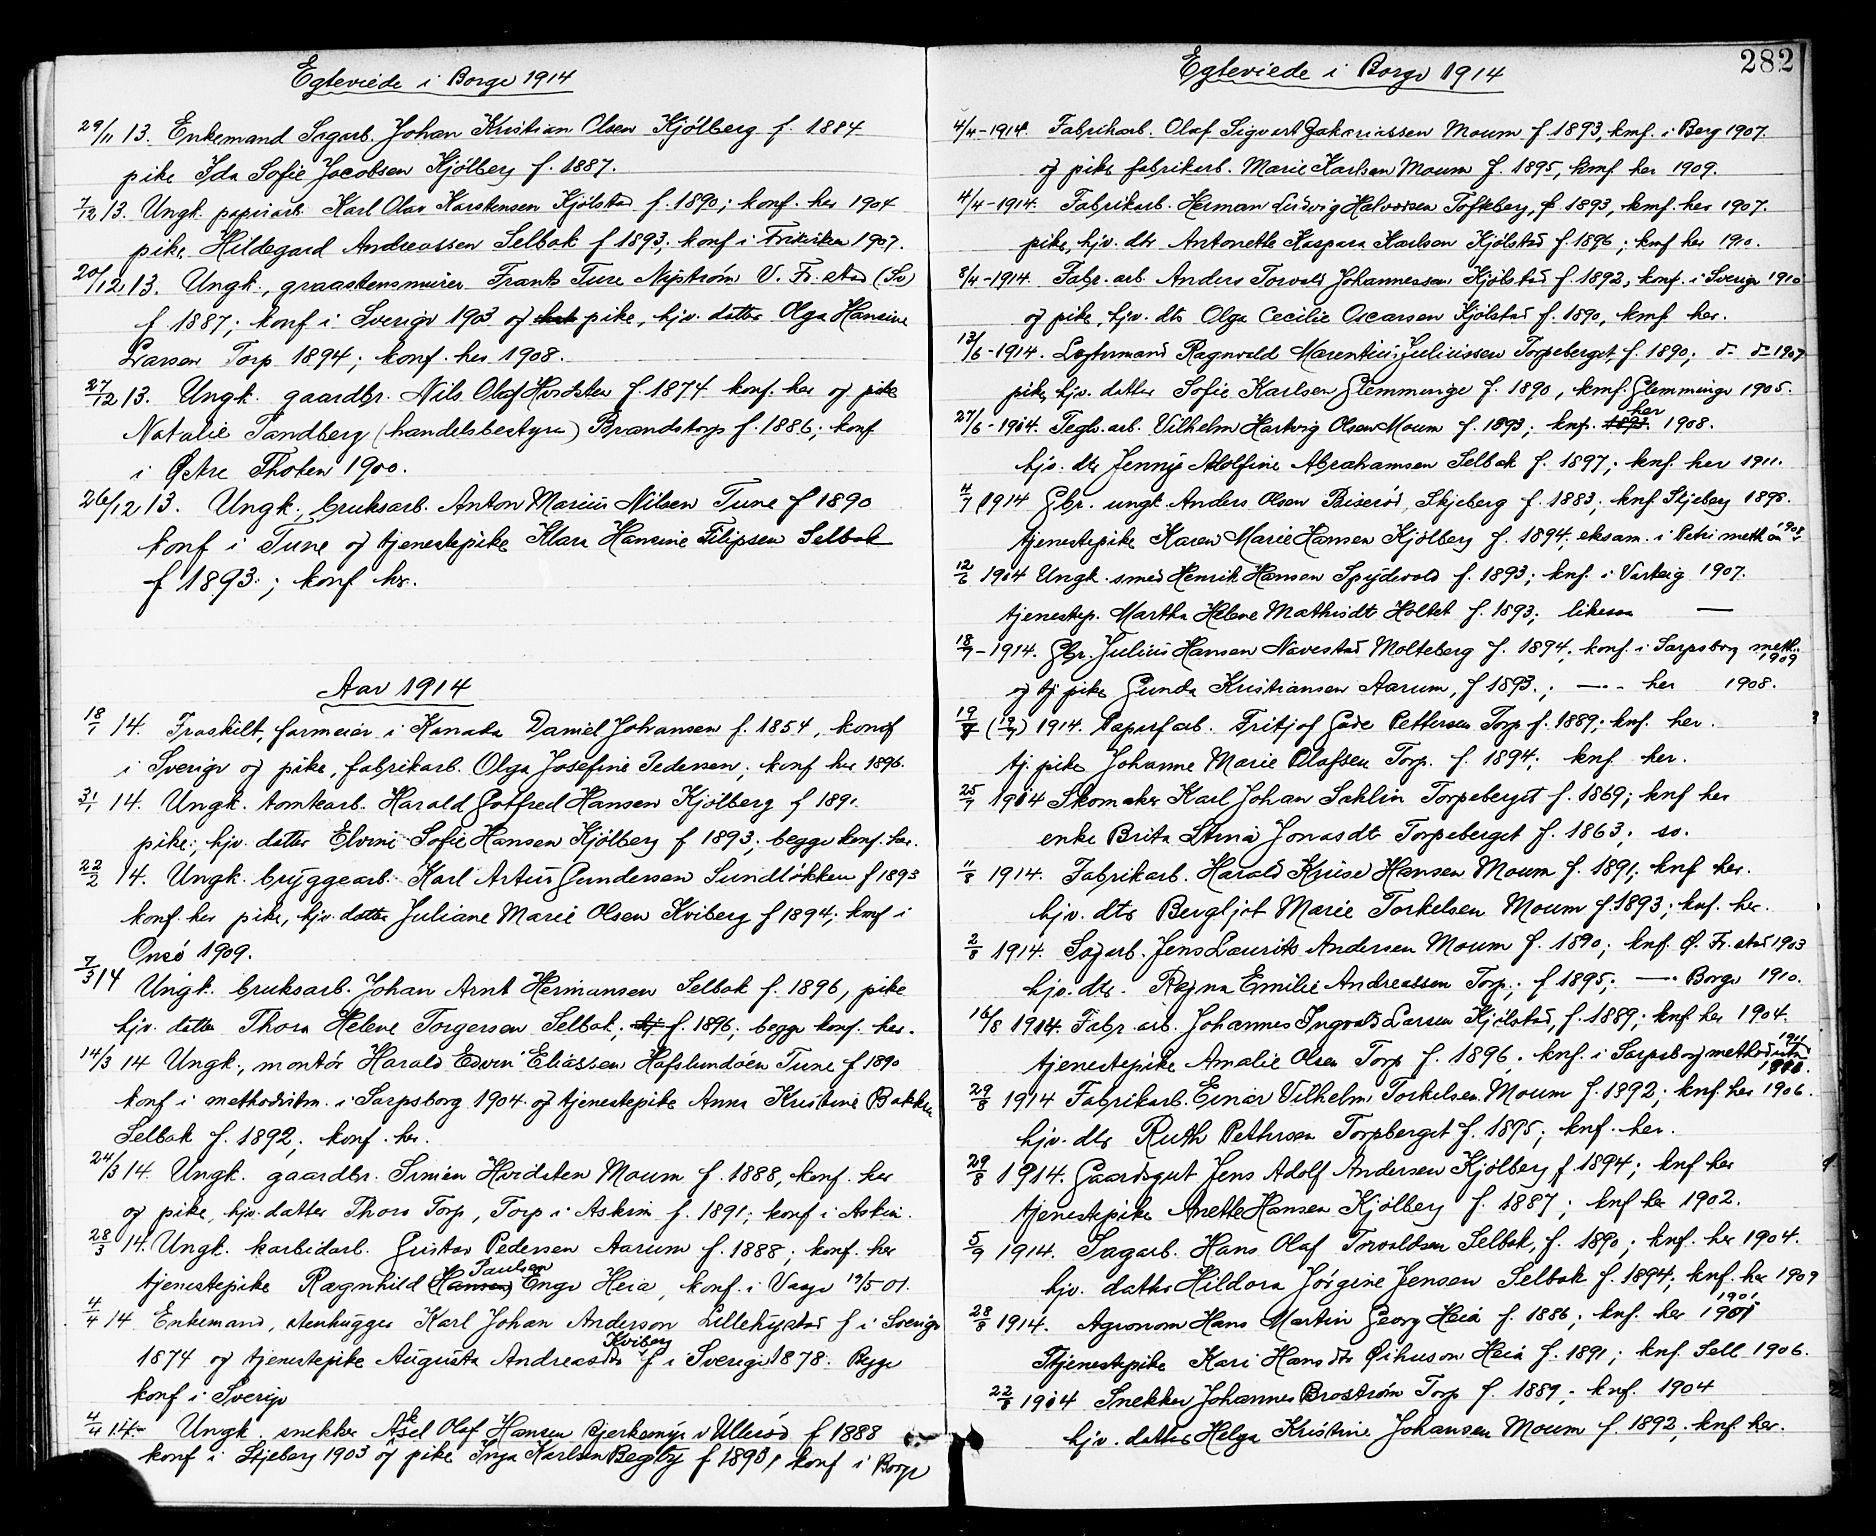 Egteviede i Borge 1914
29/11 13. Enkemand Sagarb. Johan Kristian Olsen Kjölberg f. 1884
pike Ida Sofie Jacobsen Kjölberg f. 1887.
7/12 13. Ungk. papirarb. Karl Olav Karstensen Kjölstad f. 1890; konf. her 1904
pike Hildegard Andreassen Selbak f 1893; konf i 1907.
20/12 13. Ungk., graastensmurer Frants Ture Nyström V. Fr. stad (Sv)
f. 1887; konf i Sverige 1903 og pike, hjv. datter Olga Hansine
Larsen Torp 1894; konf. her 1908.
27/12 13. Ungk. gaardbr. Nils Olaf Hvidsten f. 1874 konf. her og pike
Natalie Sandberg (handelsbestyrer) Brandstorp f. 1886; konf
i Östre Thoten 1900.
26/12 13. Ungk., bruksarb. Anton Marius Nilsen Tune f 1890
konf i Tune og tjenestepike Klara Hansine Filipsen Selbak
f 1893.; konf her.
Aar 1914
18/1 14. Fraskilt, farmeier i Kanada Daniel Johansen f. 1854, konf
i Sverige og pike, fabrikarb. Olga Josefine Pedersen; konf her 1896.
31/1 14. Ungk. tomtearb. Harald Gotfred Hansen Kjölberg f 1891.
pike, hjv. datter Elvine Sofie Hansen Kjölberg f 1893; begge konf. her.
22/2 14. Ungk. bryggearb. Karl Artur Gundersen Sundlökken f 1893
konf. her pike, hjv. datter Juliane Marie Olsen Kviberg f 1894; konf i
Onsö 1909.
7/3 14 Ungk. bruksarb. Johan Arnt Hermansen Selbak f. 1896, pike
hjv. datter Thora Helene Torgersen Selbak; f. 1896; begge konf. her.
14/3 14 Ungk., montör Harald Edvin Eliassen Hafslundöen Tune f 1890
konf i methodistm. i Sarpsborg 1904 og tjenestepike Anna Kristine Bakken
Selbak f. 1892; konf. her.
24/3 14. Ungk. gaardbr. Simen Hvidsten Moum f. 1888, konf. her
og pike, hjv. datter Thora Torp, Torp i Askim f. 1891; konf i Askim.
28/3 14. Ungk. karbidarb. Gustav Pedersen Aarum f. 1888; konf. her
tjenestepike Ragnhild Hansen Paulsen Enge Heia, konf. i Vaage 19/5 01.
4/4 14 Enkemand, stenhugger Karl Johan Anderson Lillehystad f i Sverige
1874 og tjenestepike Augusta Andreasdtr Kviberg f i Sverige 1878. Begge
konf i Sverige
4/4 14. Ungk. snekker Aksel Olaf Hansen Bjerkemyr v Ullerød f 1888
konf i Skjeberg 1903 og pike Inga Karlsen Begby f 1893, konf i Borge
Egteviede i Borge 1914
282
4/4-1914. Fabrikarb. Olaf Sigvert Zakariassen Moum f 1893, knf. i Berg 1907.
og pike fabrikarb. Marie Karlsen Moum f. 1895, konf her 1909.
4/4-1914. Fabrikarb. Herman Ludvig Halvorsen Tofteberg, f. 1893, knf. her 1907.
pike, hjv. dtr Antonette Kaspara Karlsen Kjölstad f. 1896; knf her 1910.
8/4-1914. Fabr. arb. Anders Torvald Johannessen Kjölstad f. 1892, konf. i Sverige 1910
og pike, hjv. dtr Olga Cecilie Oscarsen Kjölstad f. 1890, knf. her.
13/6-1914. Logtermand Ragnvald Marentius Juliussen Torpeberget f. 1890; d- d- 1907
pike, hjv. datter Sofie Karlsen Glemminge f. 1890, knf. Glemminge 1905.
27/6-1914. Tegls. arb. Vilhelm Hartvig Olsen Moum f. 1893; knf. her 1908.
hjv. dtr Jenny Adolfine Abrahamsen Selbak f. 1897; knf. her 1911.
4/7 1914 Gbr. ungk. Anders Olsen Biserød, Skjeberg f. 1883; knf Skjeberg 1898.
tjenestepike Karen Marie Hansen Kjölberg f. 1894; eksam. i Petri meth 1908
12/6 1914 Ungk. smed Henrik Hansen Spydevold f. 1893; knf. i Varteig 1907.
tjenestep. Martha Helene Mathisdtr Holtet f. 1893; likesaa —
18/7-1914. Gbr. Julius Hansen Navestad Molteberg f. 1894; konf. i Sarpsborg meth. 1909
og tj pike Gunda Kristiansen Aarum, f 1893.; —·- her 1908.
19/7 (12/7) 1914. Papirfarb. Fritjof Gade Pettersen Torp f. 1889; knf. her.
tj. pike Johanne Marie Olafsen Torp. f. 1894; knf her.
25/7 1914 Skomaker Karl Johan Sahlin Torpeberget f. 1869; knf her
enke Brita Stina Jonasdtr Torpeberget f. 1863; so.
11/8 1914. Fabrikarb. Harald Kruse Hansen Moum f. 1891; knf her.
hjv. dtr Bergljot Marie Torkelsen Moum f. 1893; knf. her.
2/8 1914. Sagarb. Jens Laurits Andersen Moum f. 1890; knf. Ø. Fr. stad 1903
hjv. dtr. Ragna Emilie Andreassen Torp.; f 1895; —·- Borge 1910.
16/8 1914. Fabr. arb. Johannes Ingvald Larsen Kjölstad, f. 1889; knf her 1904.
tjenestepike Amalie Olsen Torp f. 1896; knf. i Sarpsborg
29/8 1914 Fabrikarb. Einar Vilhelm Torkelsen Moum f. 1892; knf. her 1906.
hjv. dtr Ruth Pettersen Torpberget f. 1895; knf. her.
29/8 1914. Gaardsgut Jens Adolf Andersen Kjölberg f 1894; knf her
tjenestepike Anette Hansen Kjölberg f. 1887; knf her 1902.
5/9 1914. Sagarb. Hans Olaf Torvaldsen Selbak, f. 1890; knf. her 1904.
hjv. datter Hildora Jörgine Jensen Selbak f. 1894; knf. her 1909
28/8 1914. Agronom Hans Martin Georg Heia f. 1886; knf. her 1901
Tjenestepike Kari Hansdtr Heia f. 1891; knf. Sell 1906.
22/8 1914 Snekker Johannes Broström Torp f. 1889; knf. 1904
hjv. datter Helga Kristine Johansen Moum f. 1892; knf. her.